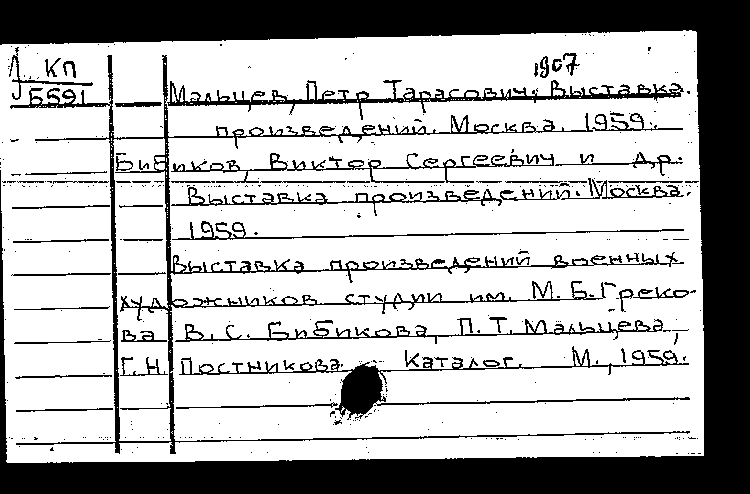 КП
5591
1907
Мальцев, Петр Тарасович. Выставка
произведений. Москва. 1959.
Бибиков, Виктор Сергеевич и др.
Выставка произведений. Москва.
1959.
Выставка произведений военных
художников студии им. М.Б.Греко-
ва В.С. Бибикова, П.Т. Мальцева,
Г.Н. Постникова. Каталог. М., 1959.